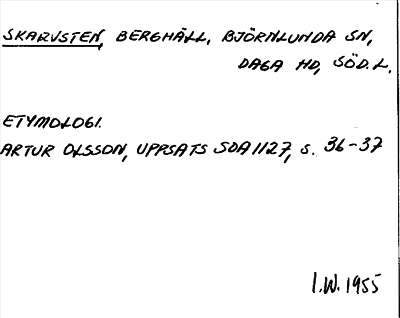 SKARVSTEN, BERGHÄLL, BJÖRNLUNDA SN,
DAGA HD, SÖD. L.
ETYMOLOGI.
ARTUR OLSSON, UPPSATS SDA 1127, S. 36-37
I.W. 1955